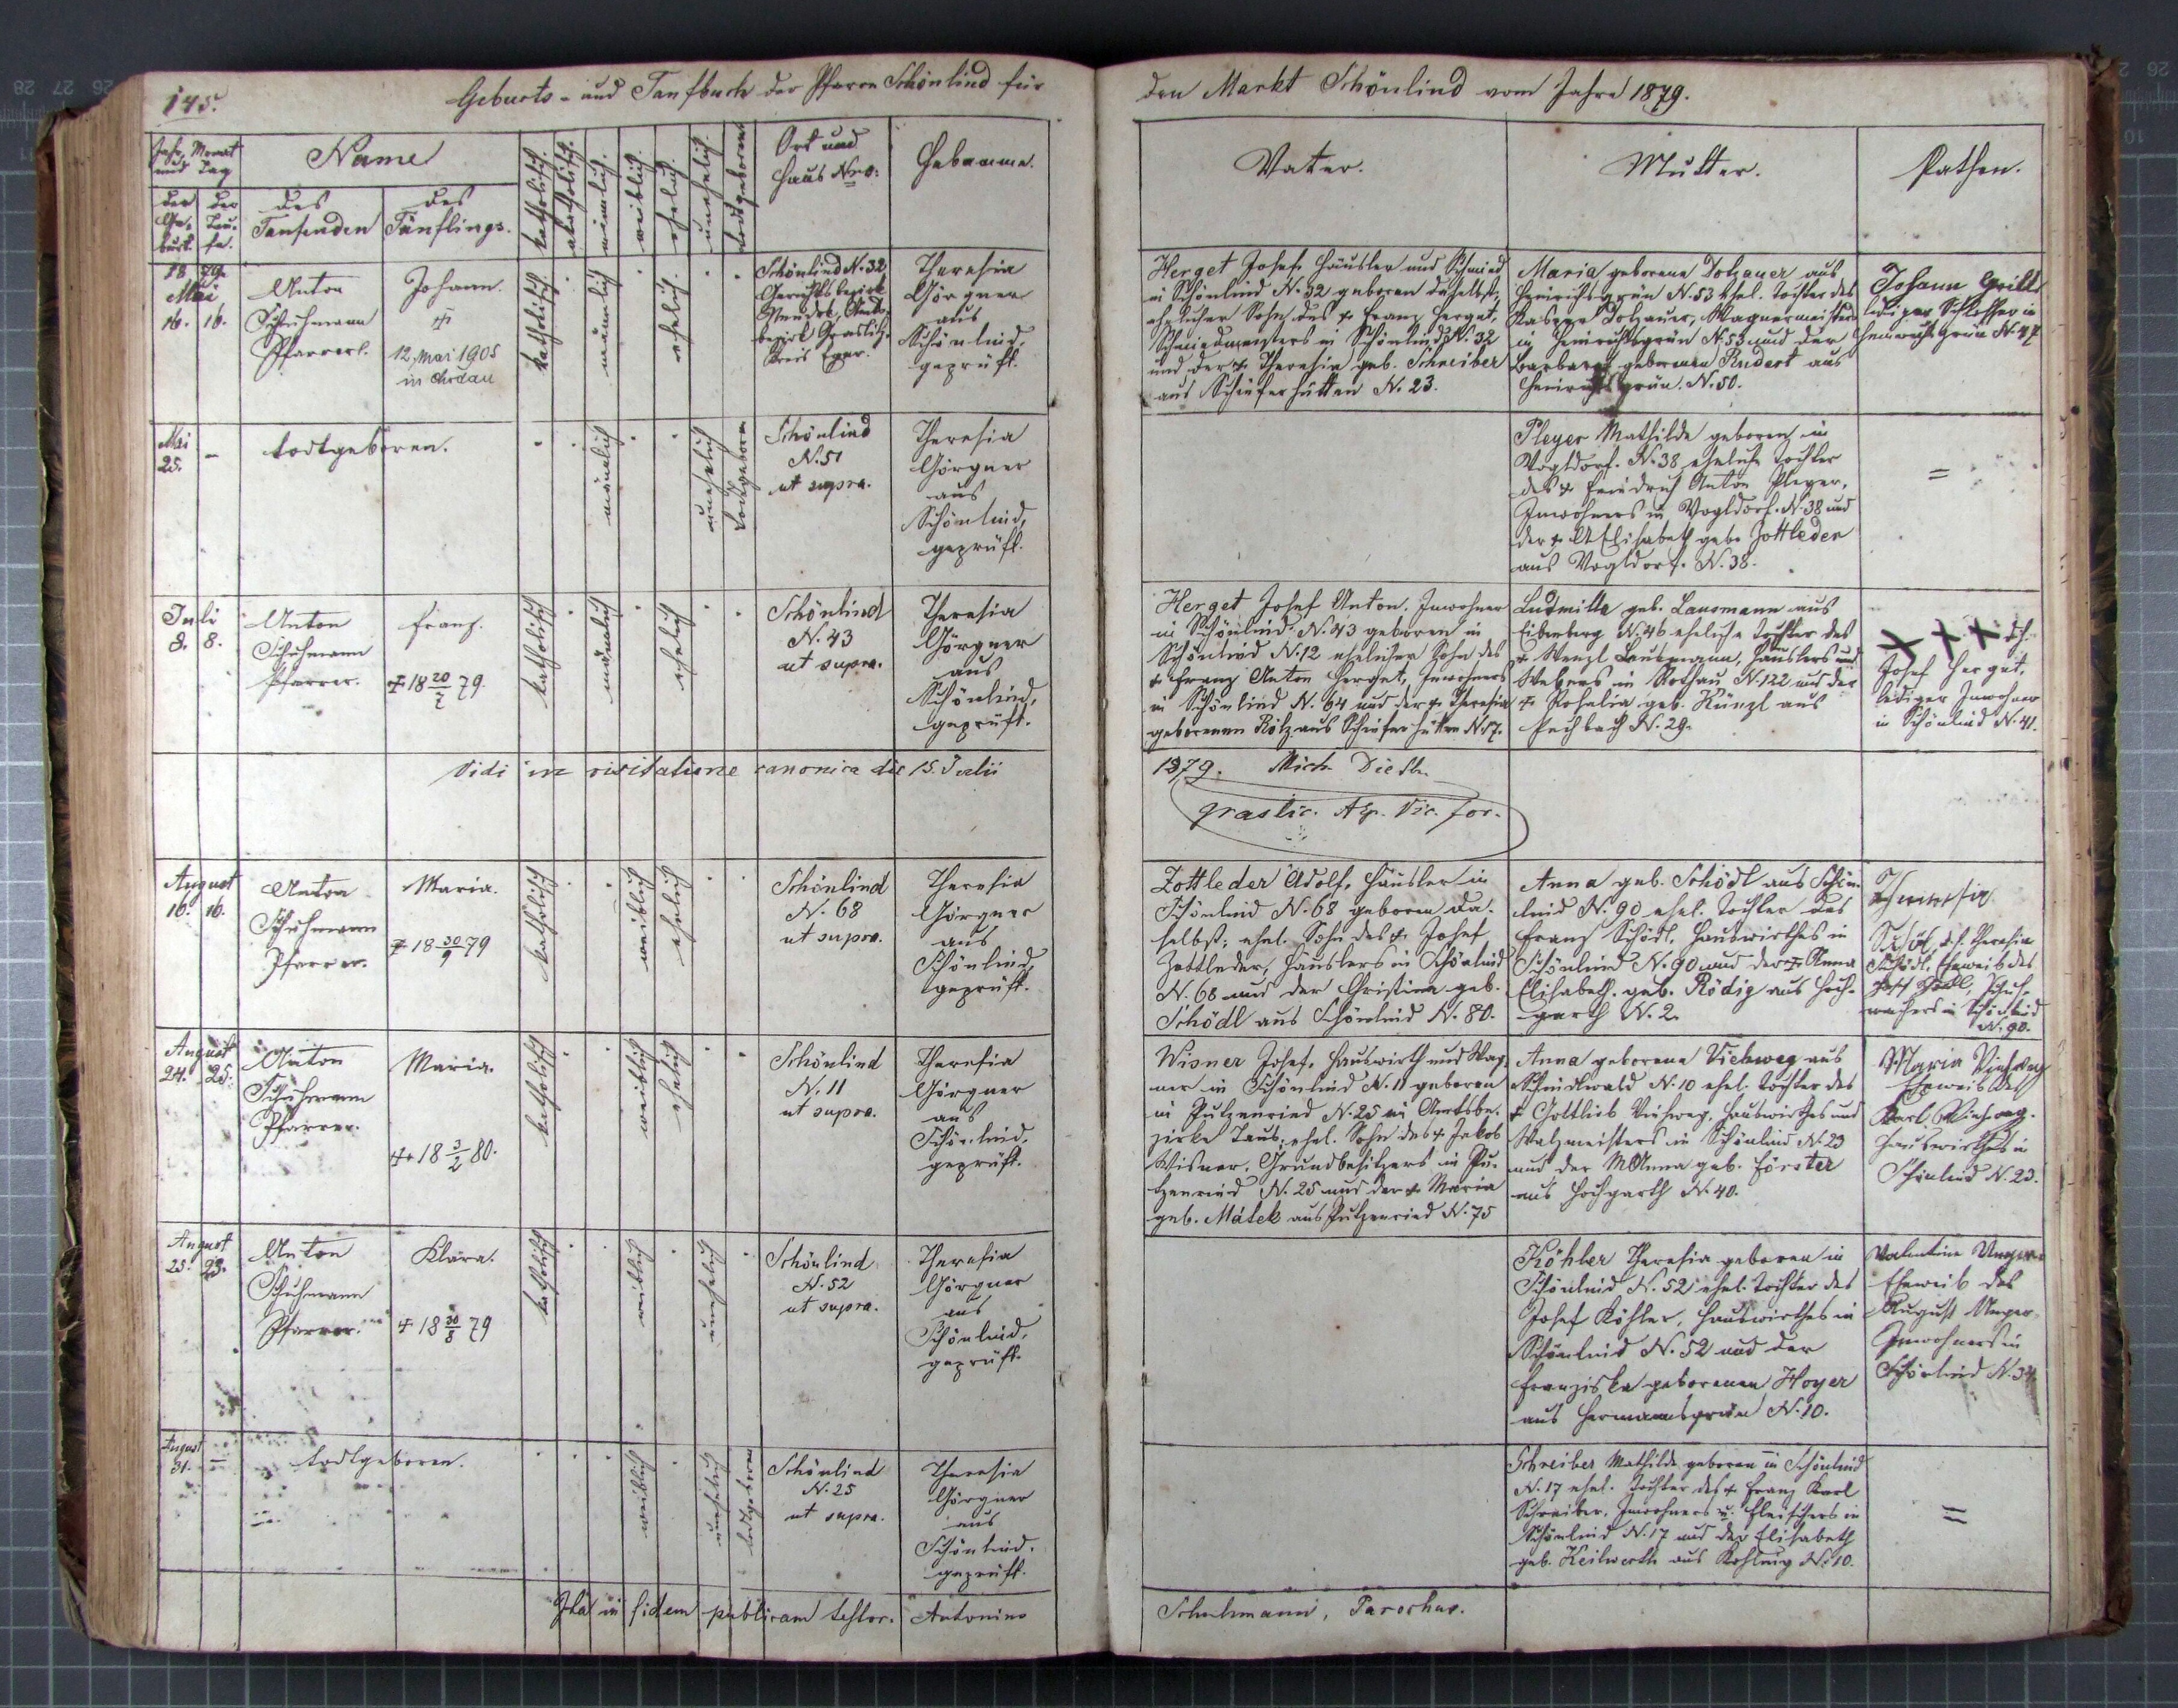 145.
Geburts- und Taufbuch der Pfarre Schönlind für
den Markt Schönlind vom Jahre 1879.
Jahr, Monat und Tag
Name
katholisch.
akatholisch.
männlich.
weiblich.
ehelich.
unehelich.
todtgeboren
Ort und
Haus Nro:
Hebamme.
Vater.
Mutter.
Pathen.
der Ge-
burt.
der Tau-
fe.
des
Taufenden
des
Täuflings.
1879.
Mai
16. 16.
Anton
Schuhmann
Pfarrer.
Johann.
12. Mai 1905
in Chodau
katholisch
männlich
ehelich.
Schönlind N. 32
Gerichtsbezirk
Neudek, Amts-
bezirk Graslitz.
Kreis Eger.
Theresia
Görgner
aus
Schönlind,
geprüft.
Herget Josef, Häusler und Schmied
in Schönlind N. 32 geboren daselbst,
ehelicher Sohn des + Franz Herget,
Schmiedmeisters in Schönlind N. 32
und der + Theresia geb. Schreiber
aus Schieferhütten N. 23.
Maria geborene Dotzauer aus
Heinrichsgrün N. 53 ehel. Tochter des
Dotzauer, Wagnermeisters
in Heinrichsgrün N. 53 und der
Barbara geborenen Rudert aus
Heinrichsgrün. N. 50.
Johann
lediger Schlosser in
Heinrichsgrün N. 47
Mai
25.
–
todtgeboren.
männlich
unehelich
todtgeboren
Schönlind
N. 51
ut supra.
Theresia
Görgner
aus
Schönlind,
geprüft.
Pleyer Mathilde geboren in
Vogldorf. N. 38 eheliche Tochter
des + Friedrich Anton Pleyer,
Inwohners in Vogldorf. N. 38 und
der + Elisabeth geb. Zottleder
aus Vogldorf. N. 38.
=
Juli
8. 8.
Anton
Schuhmann
Pfarrer.
Franz.
+ 18 20/7 79.
katholisch
männlich
ehelich
Schönlind
N. 43
ut supra.
Theresia
Görgner
aus
Schönlind,
geprüft.
Herget Josef Anton, Inwohner
in Schönlind N. 43 geboren in
Schönlind N. 12 ehelicher Sohn des
+ Franz Anton Herget, Inwohners
in Schönlind N. 64 und der + Theresia
geborenen Rötz aus Schieferhütten N. 17.
Ludmilla geb. Lausmann aus
Eibenberg N. 46 eheliche Tochter des
+ Wenzl Lausmann, Häuslers und
Webers in Rothau N. 122 und der
+ Rosalia geb. Künzl aus
Pechbach N. 29.
XXX d.h.
Josef Herget,
lediger Inwohner
in Schönlind N. 41.
Vidi in visitatione canonica die 15. Julii
1879. Mich.
Vic. for.
August
16. 16.
Anton
Schuhmann
Pfarrer.
Maria.
+ 18 30/9 79
katholisch
weiblich
ehelich
Schönlind
N. 68
ut supra.
Theresia
Görgner
aus
Schönlind,
geprüft.
Zottleder Adolf, Häusler in
Schönlind N. 68 geboren da-
selbst; ehel. Sohn des + Josef
Zottleder, Häuslers in Schönlind
N. 68 und der Christina geb.
Schödl aus Schönlind N. 80.
Anna geb. Schödl aus Schön-
lind N. 90 ehel. Tochter des
Franz Schödl, Hauswirthes in
Schönlind N. 90 und der + Anna
Elisabeth. geb. Rödig aus Hoch-
garth N. 2.
Theresia
Schödl, d.h. Theresia
Schödl, Eheweib des
Josef Schödl, Schuh-
machers in Schönlind
N. 90.
August
24. 25.
Anton
Schuhmann
Pfarrer.
Maria.
+ 18 3/2 80.
katholisch
weiblich
ehelich
Schönlind
N. 11
ut supra.
Theresia
Görgner
aus
Schönlind,
geprüft.
Wisner Josef, Hauswirth und Wag-
ner in Schönlind N. 11 geboren
in Putzenried N. 25 im Amtsbe-
zirke Taus, ehel. Sohn des + Jakob
Wisner, Grundbesitzers in Pu-
tzenried N. 25 und der + Maria
geb. Mátek aus Putzenried N. 75
Anna geborene Viehweg aus
Schindlwald N. 10 ehel. Tochter des
+ Gottlieb Viehweg, Hauswirthes und
Walzmeisters in Schönlind N. 23
und der M. Anna geb. Förster
aus Hochgarth N. 40.
Maria Viehweg
Eheweib des
Karl Viehweg.
Hauswirthes in
Schönlind N. 23.
August
25.
Anton
Schuhmann
Pfarrer.
Klara.
+ 18 30/8 79
katholisch
weiblich
unehelich
Schönlind
N. 52
ut supra.
Theresia
Görgner
aus
Schönlind,
geprüft.
Köhler Theresia geboren in
Schönlind N. 52 ehel. Tochter des
Josef Köhler, Hauswirthes in
Schönlind N. 52 und der
Franziska geborenen Hoyer
aus Hermannsgrün N. 10.
Valentine Unger
Eheweib des
August Unger
Inwohners in
Schönlind N. 34
August
31.
–
todtgeboren.
weiblich
unehelich
todtgeboren
Schönlind
N. 25
ut supra.
Theresia
Görgner
aus
Schönlind.
geprüft.
Schreiber Mathilde geboren in Schönlind
N. 17 ehel. Tochter des + Franz Karl
Schreiber, Inwohners u. Fleischers in
Schönlind N. 17 und der Elisabeth
geb. Keilwerth aus Kohling N. 10.
=
Ita in fidem publicam testor. Antonius
Schuhmann, Parochus.